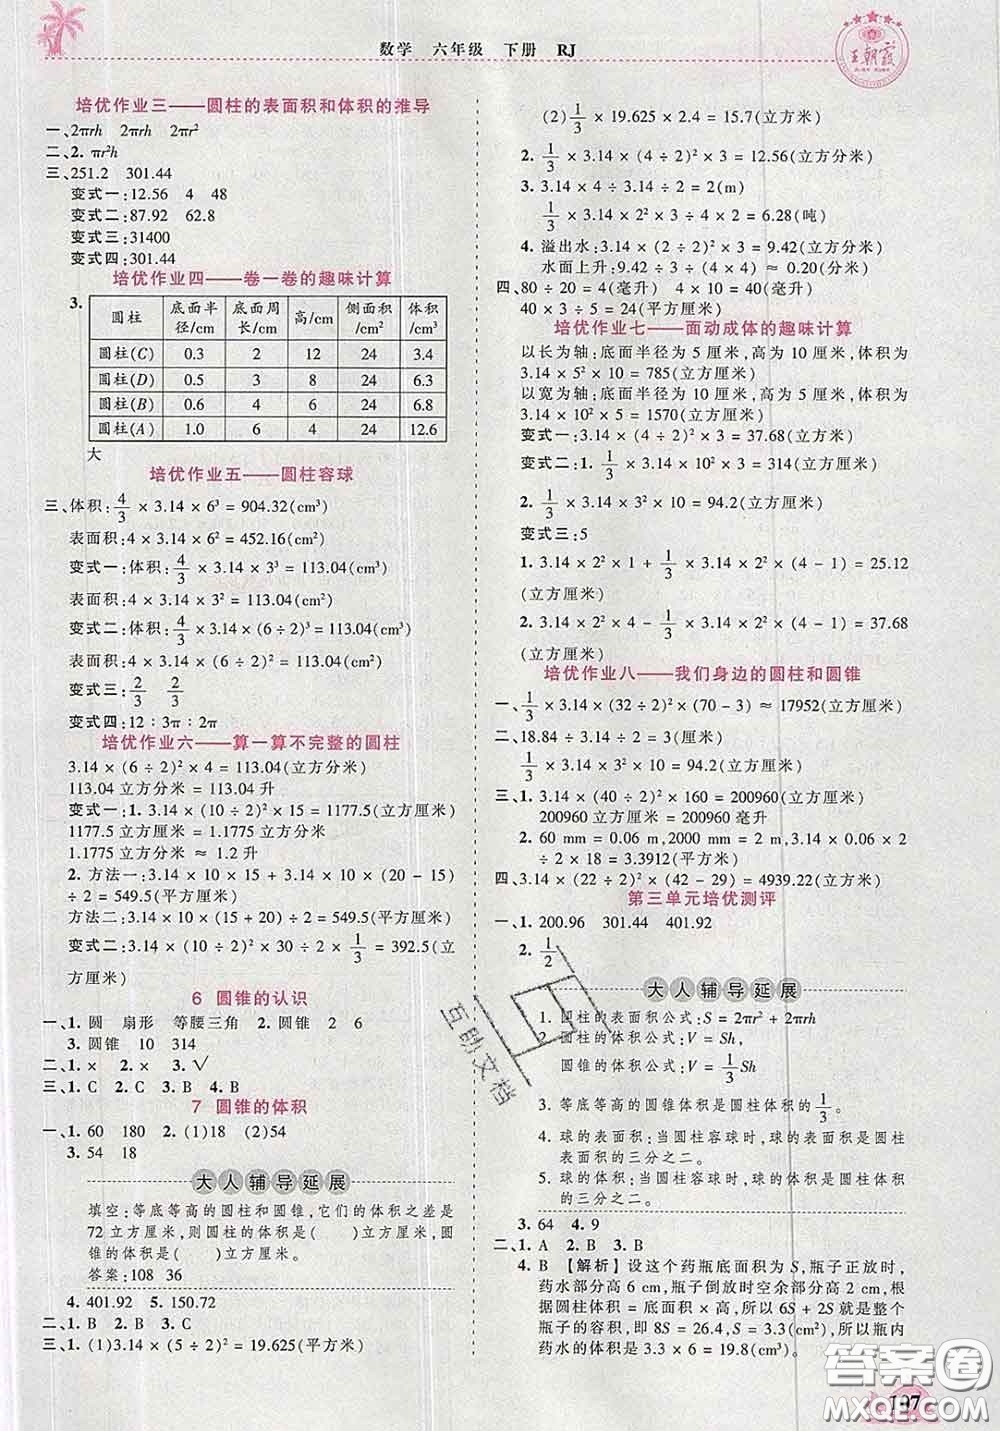 数学 六年级 下册 RJ
王朝霞
培优作业三——圆柱的表面积和体积的推导
一、2πrh 2πrh 2πr²
二、2. πr²h
三、251.2 301.44
变式一:12.56 4 48
变式二:87.92 62.8
变式三:31400
变式四:301.44
培优作业四——卷一卷的趣味计算
3.
圆柱 底面半径/cm 底面周长/cm 高/cm 侧面积/cm² 体积/cm³
圆柱(C) 0.3 2 12 24 3.4
圆柱(D) 0.5 3 8 24 6.3
圆柱(B) 0.6 4 6 24 6.8
圆柱(A) 1.0 6 4 24 12.6
大
培优作业五——圆柱容球
三、体积:4/3 × 3.14 × 6³ = 904.32(cm³)
表面积:4 × 3.14 × 6² = 452.16(cm²)
变式一:体积:4/3 × 3.14 × 3³ = 113.04(cm³)
表面积:4 × 3.14 × 3² = 113.04(cm²)
变式二:体积:4/3 × 3.14 × (6 ÷ 2)³ = 113.04(cm³)
表面积:4 × 3.14 × (6 ÷ 2)² = 113.04(cm²)
变式三:2/3 2/3
变式四:12 : 3π : 2π
培优作业六——算一算不完整的圆柱
3.14 × (6 ÷ 2)² × 4 = 113.04(立方分米)
113.04 立方分米 = 113.04 升
变式一:1. 3.14 × (10 ÷ 2)² × 15 = 1177.5(立方厘米)
1177.5 立方厘米 = 1.1775 立方分米
1.1775 立方分米 ≈ 1.2 升
2. 方法一:3.14 × 10 × 15 + 3.14 × 10 × (20 - 15)
÷ 2 = 549.5(平方厘米)
方法二:3.14 × 10 × (15 + 20) ÷ 2 = 549.5(平方厘米)
变式二:3.14 × 10 × (15 + 10) ÷ 2 × 1/3 = 392.5(立
方厘米)
6 圆锥的认识
一、1. 圆 扇形 等腰三角 2. 圆锥 2 6
3. 圆锥 10 314
二、1. × 2. × 3. √
三、1. C 2. C 3. B 4. B
7 圆锥的体积
一、1. 60 180 2. (1)18 (2)54
3. 54 18
大人辅导延展
填空:等底等高的圆柱和圆锥,它们的体积之差是
72 立方厘米,则圆柱的体积是( )立方厘米,圆
锥的体积是( )立方厘米。
答案:108 36
4. 401.92 5. 150.72
二、1. B 2. B 3. C
三、1. (1)3.14 × (5 ÷ 2)² = 19.625(平方米)
(2)1/3 × 19.625 × 2.4 = 15.7(立方米)
2. 1/3 × 3.14 × (4 ÷ 2)² × 3 = 12.56(立方分米)
3. 3.14 × 4 ÷ 3.14 ÷ 2 = 2(m)
1/3 × 3.14 × 2² × 3 ÷ 4 × 2 = 6.28(吨)
4. 溢出水:3.14 × (2 ÷ 2)² × 3 = 9.42(立方分米)
水面上升:9.42 ÷ 3 ÷ (4 × 4) ≈ 0.20(分米)
四、80 ÷ 20 = 4(毫升) 4 × 10 = 40(毫升)
40 × 3 ÷ 5 = 24(平方厘米)
培优作业七——面动成体的趣味计算
以长为轴:底面半径为 5 厘米,高为 10 厘米,体积为
3.14 × 5² × 10 = 785(立方厘米)
以宽为轴:底面半径为 10 厘米,高为 5 厘米,体积为
3.14 × 10² × 5 = 1570(立方厘米)
变式一:3.14 × (4 ÷ 2)² × 3 = 37.68(立方厘米)
变式二:1. 1/3 × 3.14 × 10² × 3 = 314(立方厘米)
2. 1/3 × 3.14 × 3² × 10 = 94.2(立方厘米)
变式三:5
1. 3.14 × 2² × 1 + 1/3 × 3.14 × 2² × (4 - 1) = 25.12
(立方厘米)
2. 3.14 × 2² × 4 - 1/3 × 3.14 × 2² × (4 - 1) = 37.68
(立方厘米)
培优作业八——我们身边的圆柱和圆锥
一、1/3 × 3.14 × (32 ÷ 2)² × (70 - 3) ≈ 17952(立方厘米)
二、18.84 ÷ 3.14 ÷ 2 = 3(厘米)
1/3 × 3.14 × 3² × 10 = 94.2(立方厘米)
三、1. 3.14 × (40 ÷ 2)² × 160 = 200960(立方厘米)
200960 立方厘米 = 200960 毫升
2. 60 mm = 0.06 m,2000 mm = 2 m,3.14 × 0.06 × 2
÷ 2 × 18 = 3.3912(平方米)
四、3.14 × (22 ÷ 2)² × (55 - 42) = 4939.22(立方米)
第三单元培优测评
一、1. 200.96 301.44 401.92
2. 1/2
大人辅导延展
1. 圆柱的表面积公式:S = 2πr² + 2πrh
2. 圆柱的体积公式:V = Sh,
圆锥的体积公式:V = 1/3 Sh
3. 等底等高的圆锥体积是圆柱体积的1/3。
4. 球的表面积:当圆柱容球时,球的表面积是圆柱
表面积的三分之二。
5. 球的体积:当圆柱容球时,球的体积是圆柱体积
的三分之二。
3. 64 4. 9
二、1. A 2. B 3. B
4. B 【解析】设这个药瓶底面积为 S,瓶子正放时,
药水部分高 6 cm,瓶子倒放时空余部分高 2 cm,根
据圆柱体积 = 底面积 × 高,所以 6S + 2S 就是整个
瓶子的容积,即 8S = 26.4,S = 3.3(cm²),所以瓶内
药水的体积是 3.3 × 6 = 19.8(cm³)。
互助文档
答案圈
MXQE.COM
107